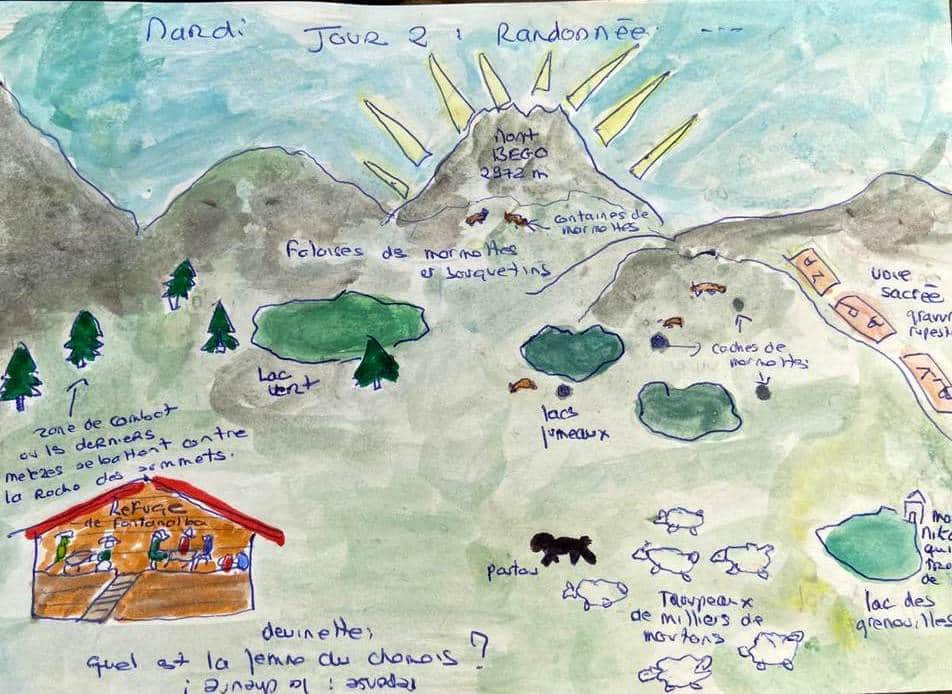 Mardi Jour 2 : Randonnée. ---
Mont
BEGO
2972 m
centaines de
marmottes
Falaises de marmottes
et bouquetins
voie
sacrée
gravur
rupest
caches de
marmottes
Lac
vert
lacs
jumeaux
zone de combat
où ls derniers
mélèzes se battent contre
la Roche des sommets.
Refuge
de Fontanalba
patou
Troupeaux
de milliers de
moutons
lac des
grenouilles
devinette;
quel est la femme du chamois ?
réponse : la chèvre !